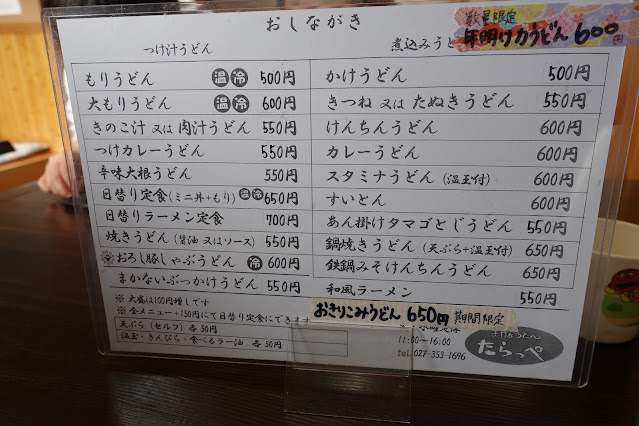 おしながき
数量限定
年明け力うどん 600
つけ汁うどん
もりうどん 温 冷 500円
大もりうどん 温 冷 600円
きのこ汁 又は 肉汁うどん 550円
つけカレーうどん 550円
辛味大根うどん 550円
日替り定食(ミニ丼+もり) 温 冷 650円
日替りラーメン定食 700円
焼きうどん(醤油 又はソース) 550円
おろし豚しゃぶうどん 冷 600円
まかないぶっかけうどん 550円
※ 大盛は100円増しです
※ 全メニュー+150円にて日替り定食にできます
天ぷら(セルフ) 各50円
温玉・きんぴら・食べるラー油 各50円
煮込みうど
かけうどん 500円
きつね 又は たぬきうどん 550円
けんちんうどん 600円
カレーうどん 600円
スタミナうどん(温玉付) 600円
すいとん 600円
あん掛けタマゴとじうどん 550円
鍋焼きうどん(天ぷら+温玉付) 650円
鉄鍋みそけんちんうどん 650円
和風ラーメン 550円
おきりこみうどん 650円 期間限定
11:00~16:00
tel.027-353-1696
たらっぺ